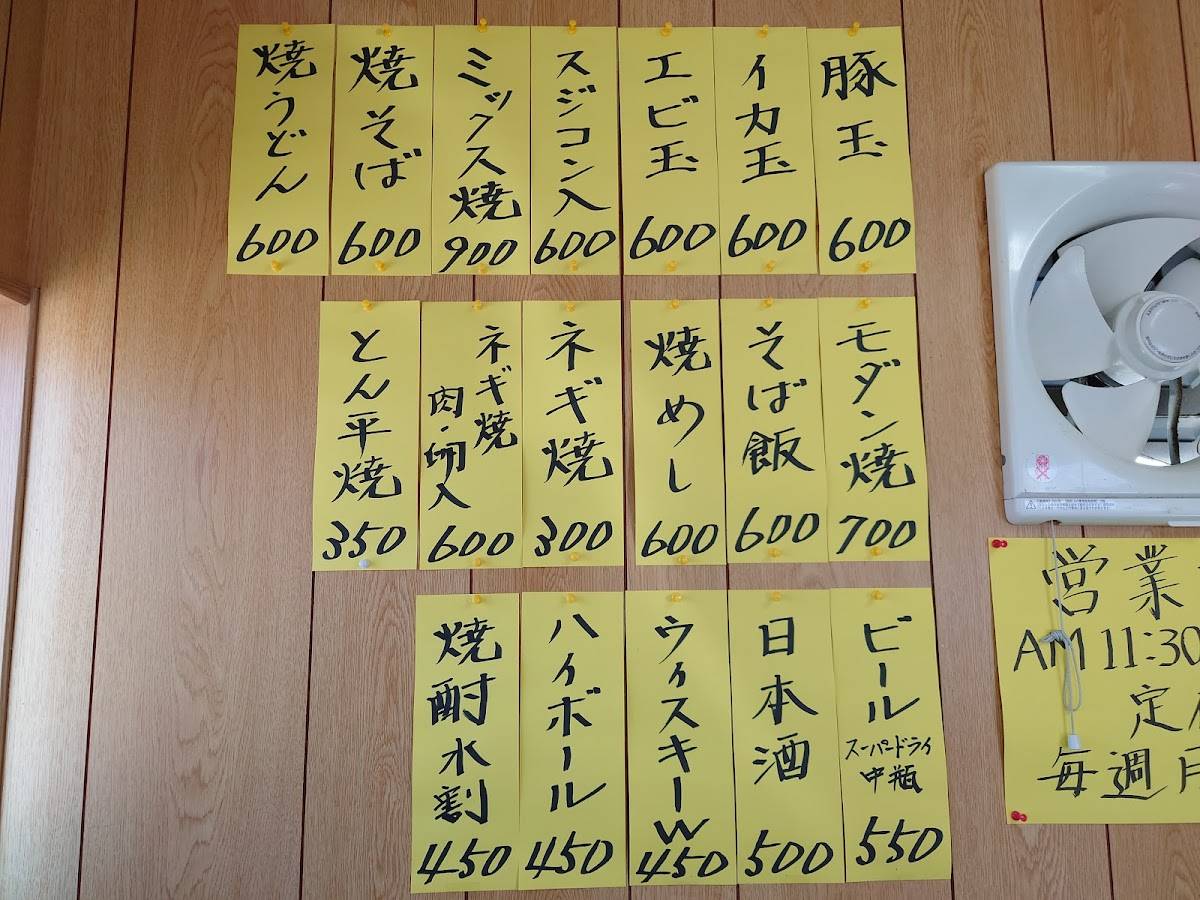 豚玉
600
イカ玉
600
エビ玉
600
スジコン入
600
ミックス焼
900
焼そば
600
焼うどん
600
モダン焼
700
そば飯
600
焼めし
600
ネギ焼
300
ネギ焼
肉・卵入
600
とん平焼
350
ビール
スーパードライ
中瓶
550
日本酒
500
ウィスキーW
450
ハイボール
450
焼酎水割
450
営業
AM11:30
定
毎週月